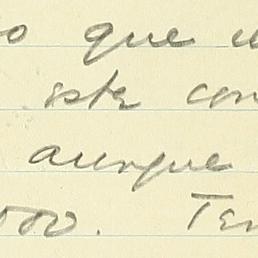 o que
este con
aunque
Ten